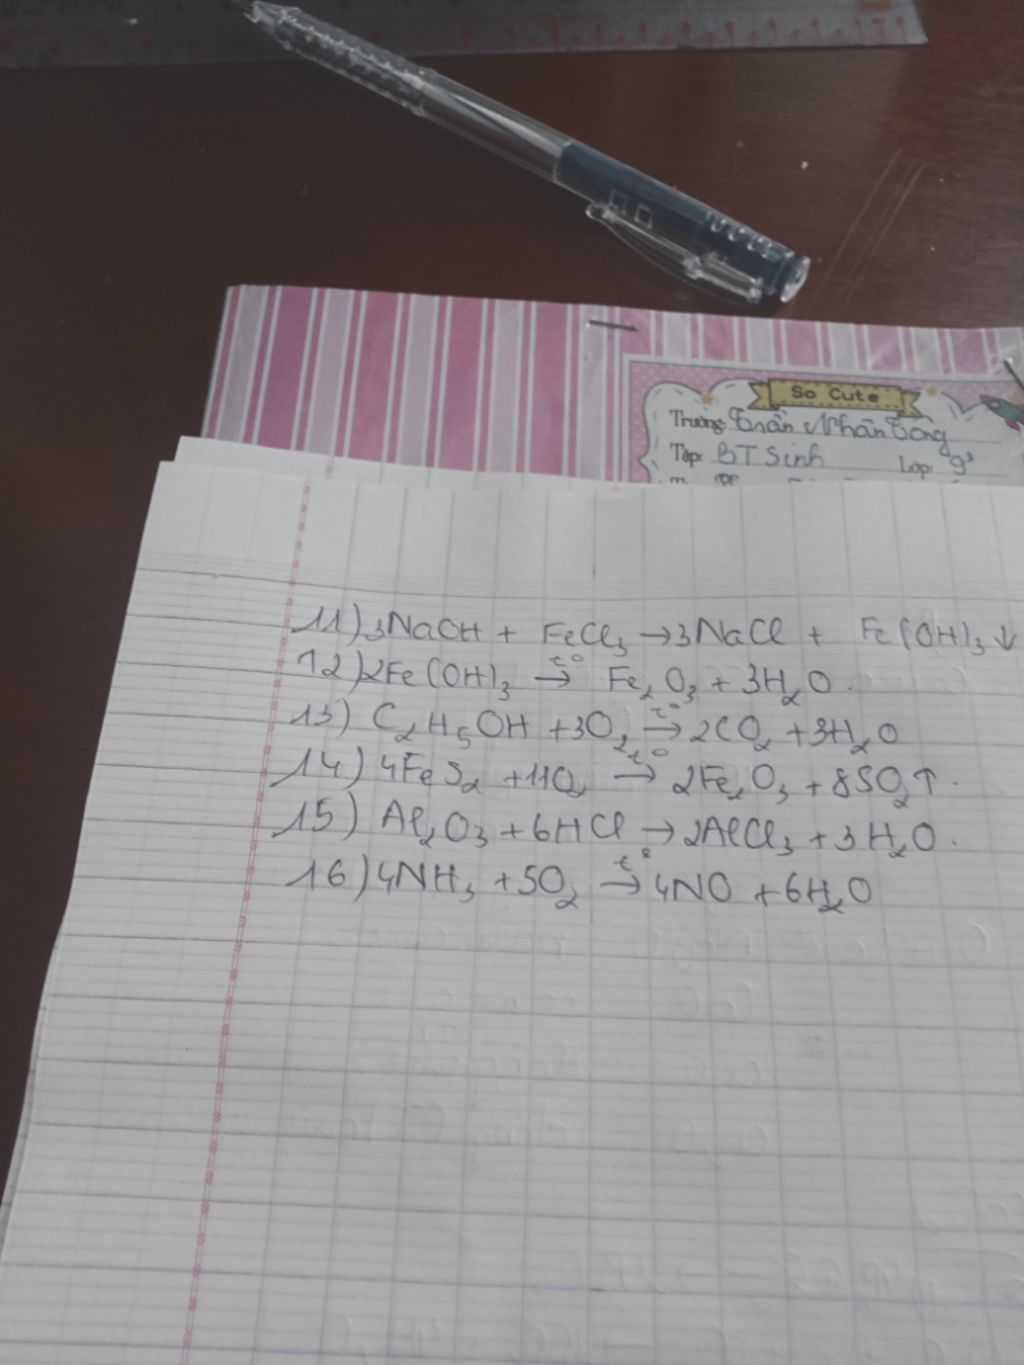 So Cute
Trường: Trần Nhân Tông
Tập: BT Sinh Lớp: 9³
11) 3NaOH + FeCl₃ → 3NaCl + Fe(OH)₃ ↓
12) 2Fe(OH)₃ t° → Fe₂O₃ + 3H₂O.
13) C₂H₅OH + 3O₂ t° → 2CO₂ + 3H₂O
14) 4FeS₂ + 11O₂ t° → 2Fe₂O₃ + 8SO₂↑.
15) Al₂O₃ + 6HCl → 2AlCl₃ + 3H₂O.
16) 4NH₃ + 5O₂ t° → 4NO + 6H₂O